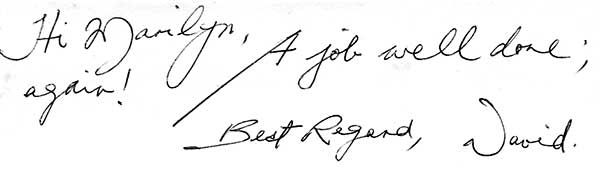 Hi Marilyn, A job well done;
again!
Best Regard, David.